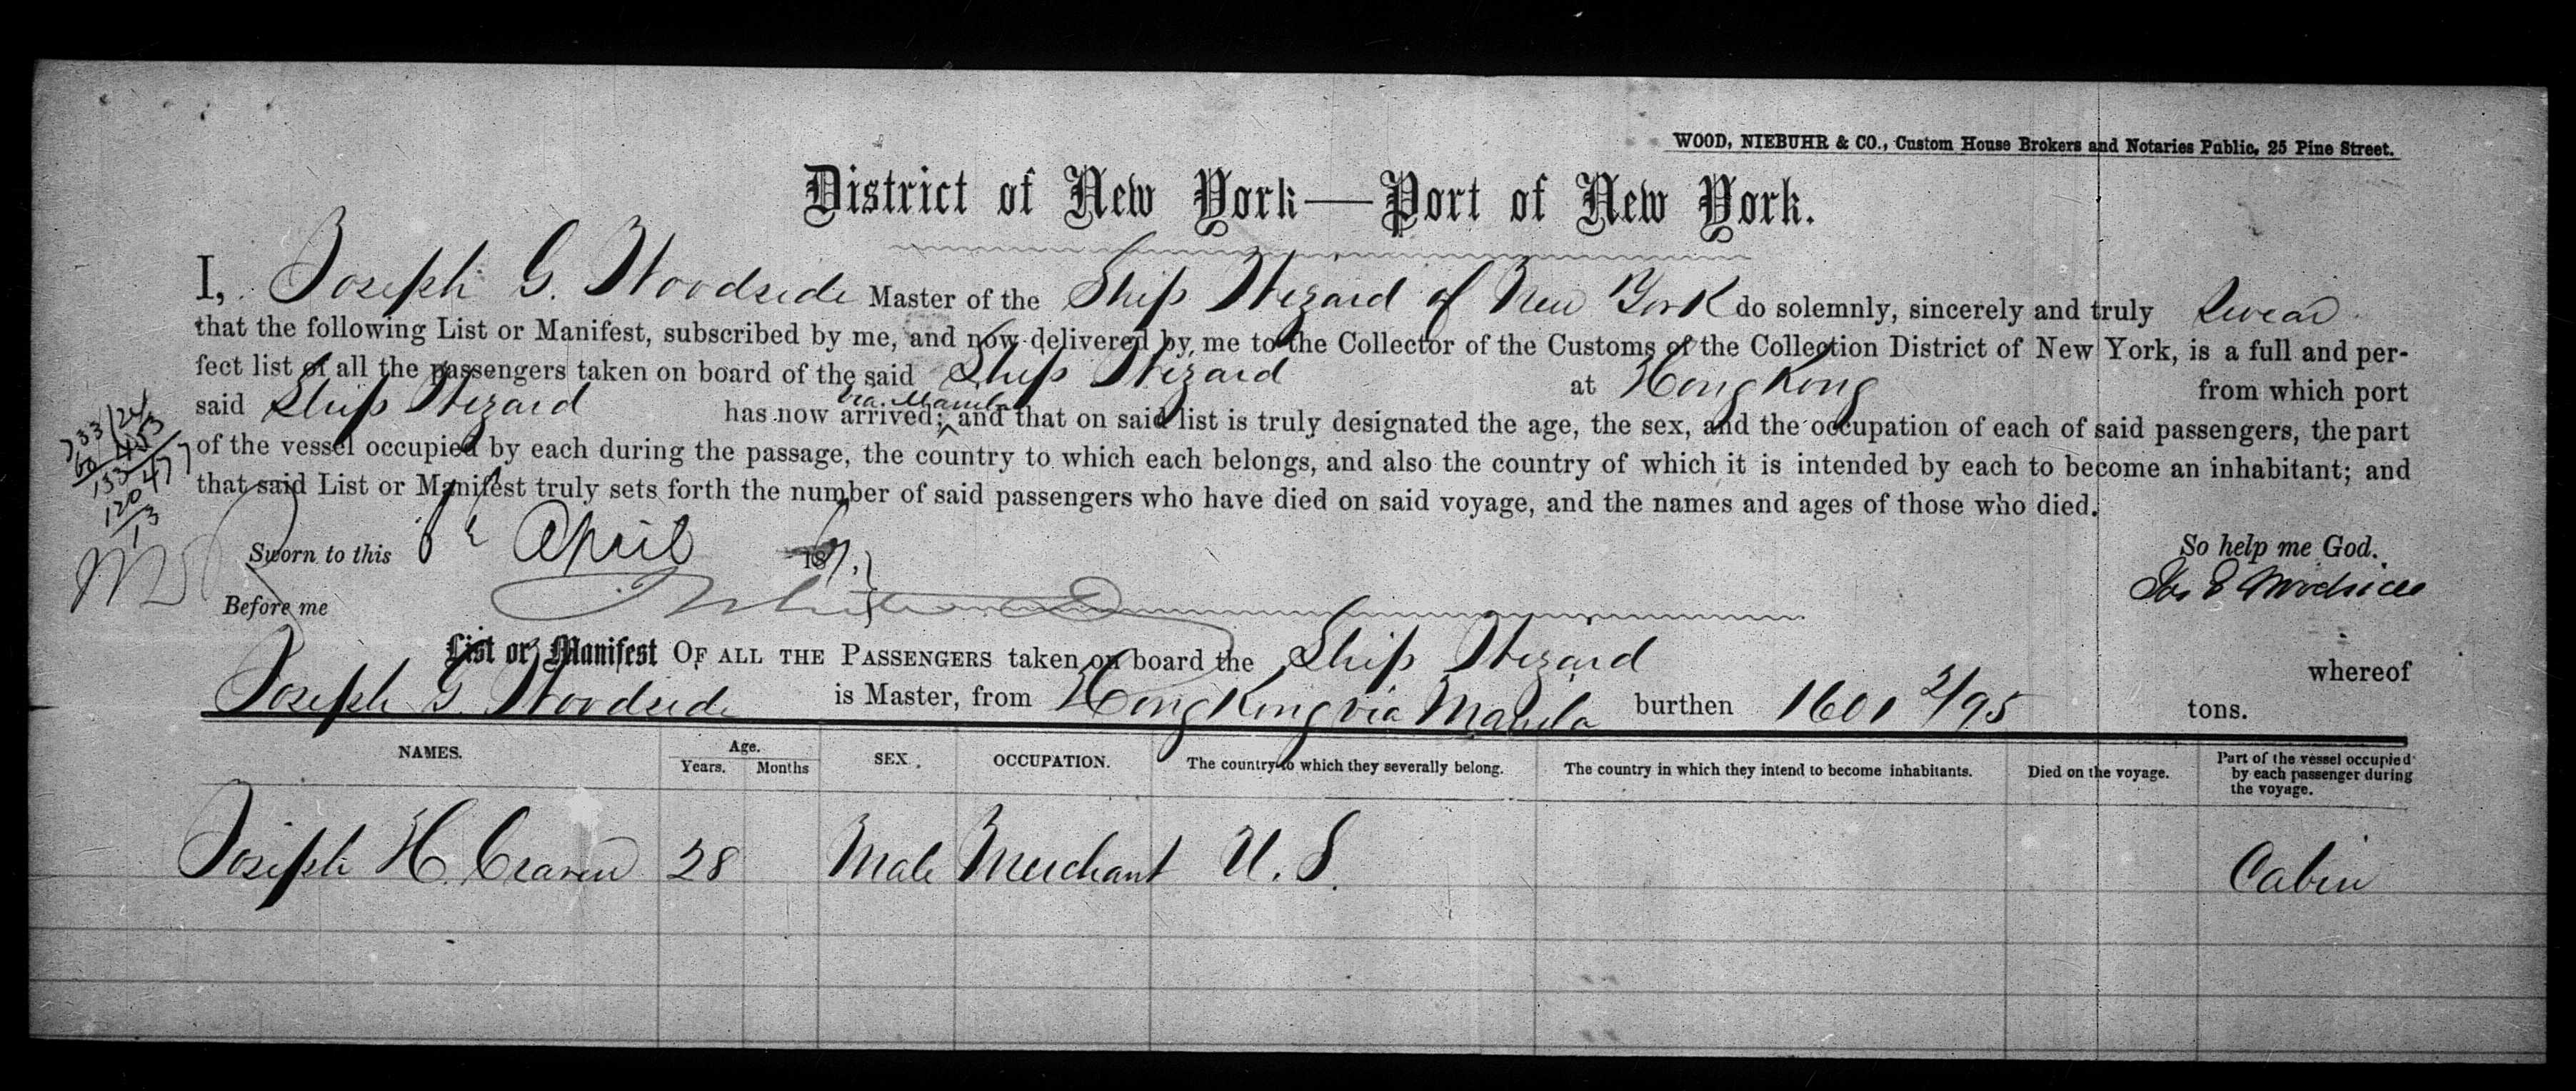 WOOD, NIEBUHR & CO., Custom House Brokers and Notaries Public, 25 Pine Street.
District of New York—Port of New York.
I, Joseph G. Woodside Master of the Ship Wizard of New York do solemnly, sincerely and truly swear
that the following List or Manifest, subscribed by me, and now delivered by me to the Collector of the Customs of the Collection District of New York, is a full and per-
fect list of all the passengers taken on board of the said Ship Wizard at Hong Kong from which port
via Manila
said Ship Wizard has now arrived; and that on said list is truly designated the age, the sex, and the occupation of each of said passengers, the part
of the vessel occupied by each during the passage, the country to which each belongs, and also the country of which it is intended by each to become an inhabitant; and
that said List or Manifest truly sets forth the number of said passengers who have died on said voyage, and the names and ages of those who died.
So help me God.
Sworn to this April 18
Before me
List or Manifest OF ALL THE PASSENGERS taken on board the Ship Wizard whereof
Joseph G. Woodside is Master, from Hong Kong via Manila burthen 1601 2/95 tons.
NAMES. Age. Years. Months SEX. OCCUPATION. The country to which they severally belong. The country in which they intend to become inhabitants. Died on the voyage. Part of the vessel occupied by each passenger during the voyage.
Joseph H. Craven 28 Male Merchant U.S. Cabin